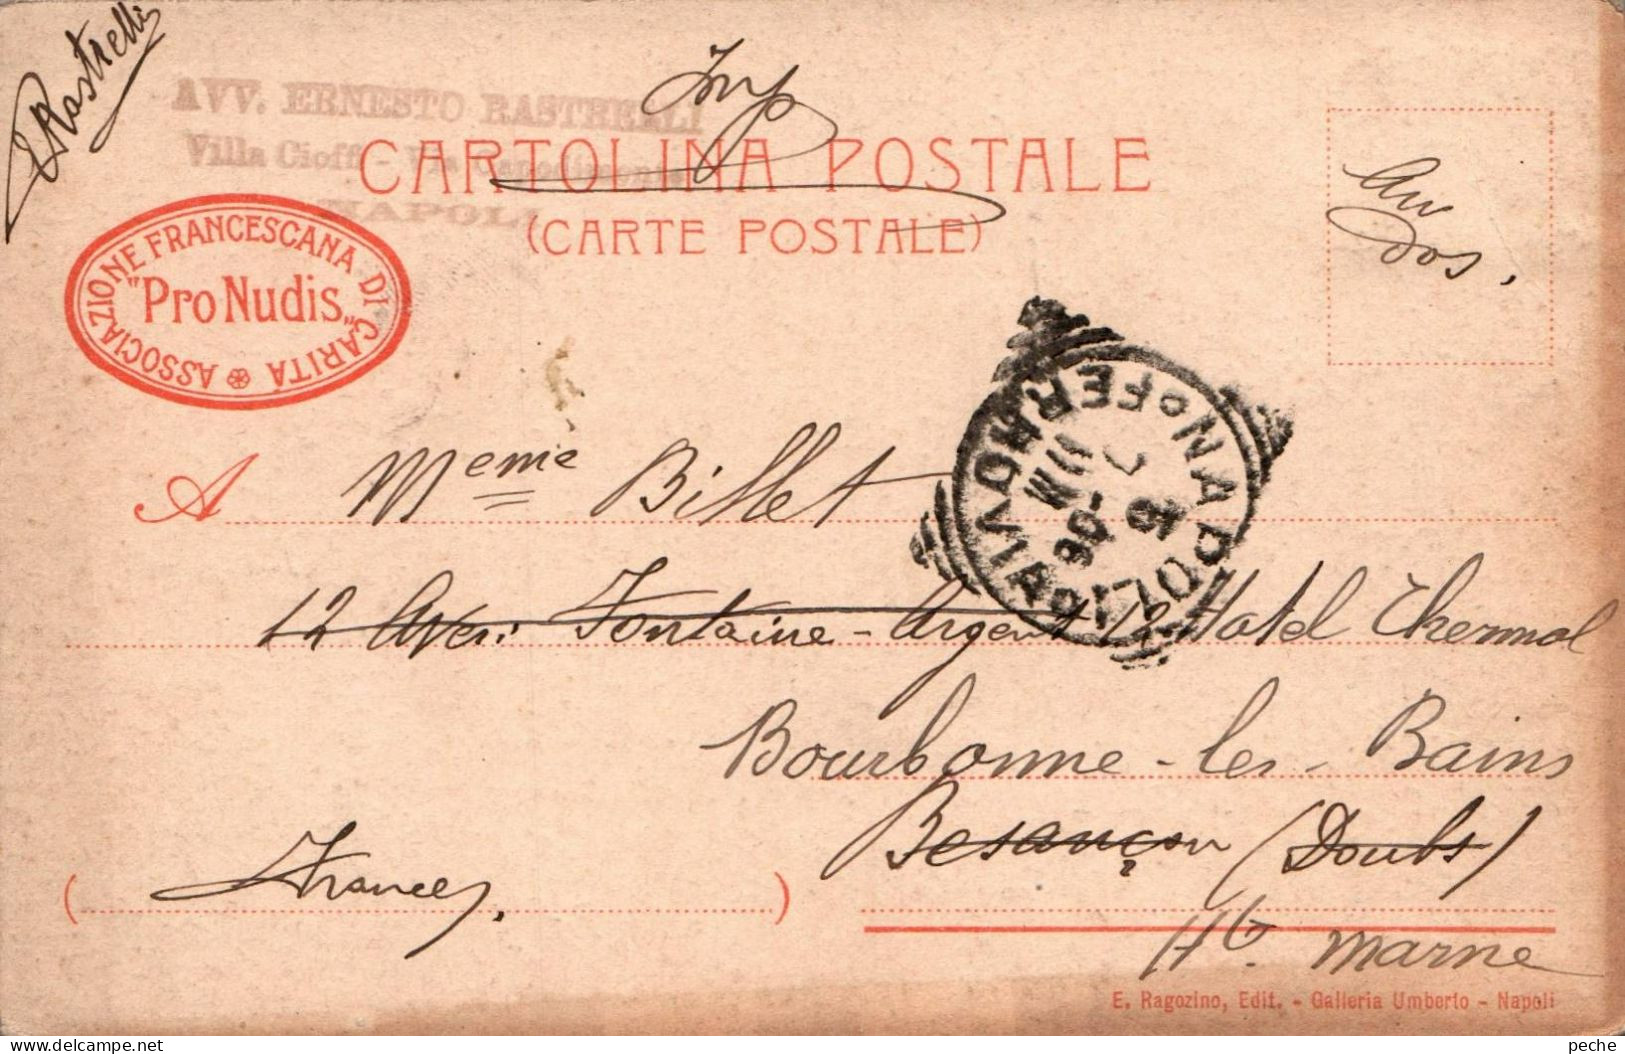 E Rastrelli
AVV. ERNESTO RASTRELLI
Villa Cioffi - Via Capodimonte
NAPOLI
Imp
CARTOLINA POSTALE
(CARTE POSTALE)
Au
dos.
ASSOCIAZIONE FRANCESCANA DI CARITÀ
"Pro Nudis"
NAPOLI
FERROVIA
6
7
-06
10 M
A Meme Billet
12 Aven: Fontaine-Argent 12 Hotel Thermal
Bourbonne-les-Bains
Besançon (Doubs)
(France.)
Hte Marne
E. Ragozino, Edit. - Galleria Umberto - Napoli
delcampe.net
peche